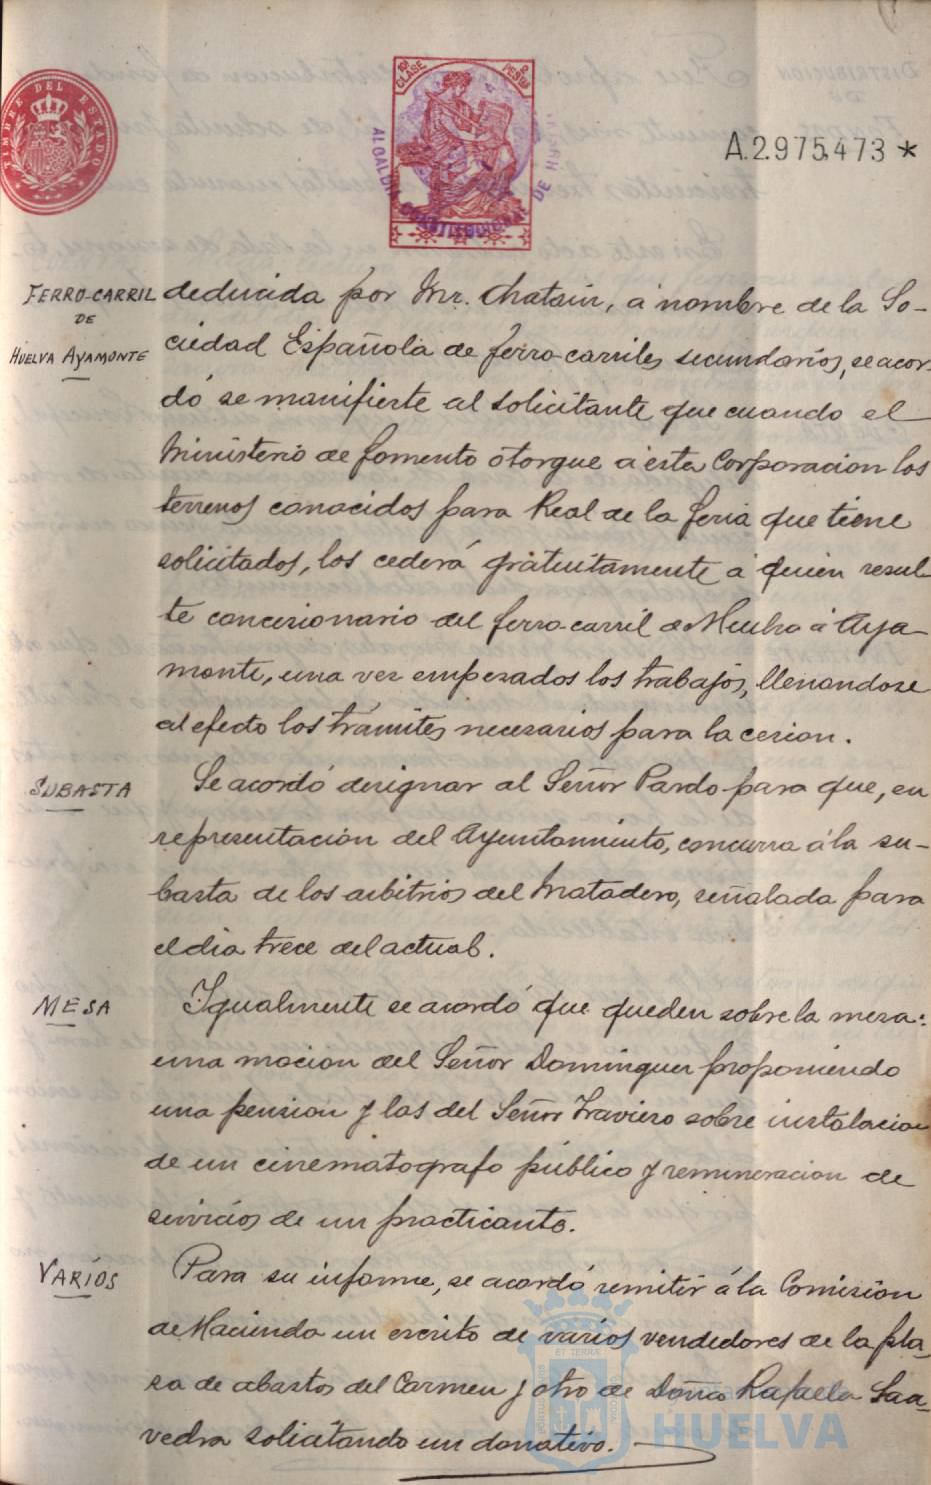 TIMBRE DEL ESTADO
10ª CLASE
PESETAS
ALCALDIA CONSTITUCIONAL DE HUELVA
A.2.975.473 *
FERRO-CARRIL
DE
HUELVA AYAMONTE
deducida por Mr. Chatain, á nombre de la So-
ciedad Española de ferro-carriles secundarios, se acor-
dó se manifieste al solicitante que cuando el
Ministerio de fomento otorgue á esta Corporacion los
terrenos conocidos para Real de la feria que tiene
solicitados, los cederá gratuitamente á quien resul-
te concesionario del ferro-carril de Huelva á Aya-
monte, una vez empezados los trabajos, llenandose
al efecto los trámites necesarios para la cesion.
SUBASTA
Se acordó designar al Señor Pardo para que, en
representación del Ayuntamiento, concurra á la su-
basta de los arbitrios del Matadero, señalada para
el dia trece del actual.
MESA
Igualmente se acordó que queden sobre la mesa:
una mocion del Señor Dominguez proponiendo
una pension y las del Señor Traviero sobre instalacion
de un cinematografo público y remuneracion de
servicios de un practicante.
VARIOS
Para su informe, se acordó remitir á la Comisión
de Hacienda un escrito de varios vendedores de la pla-
za de abastos del Carmen y otro de Doña Rafaela Saa-
vedra solicitando un donativo.
HUELVA